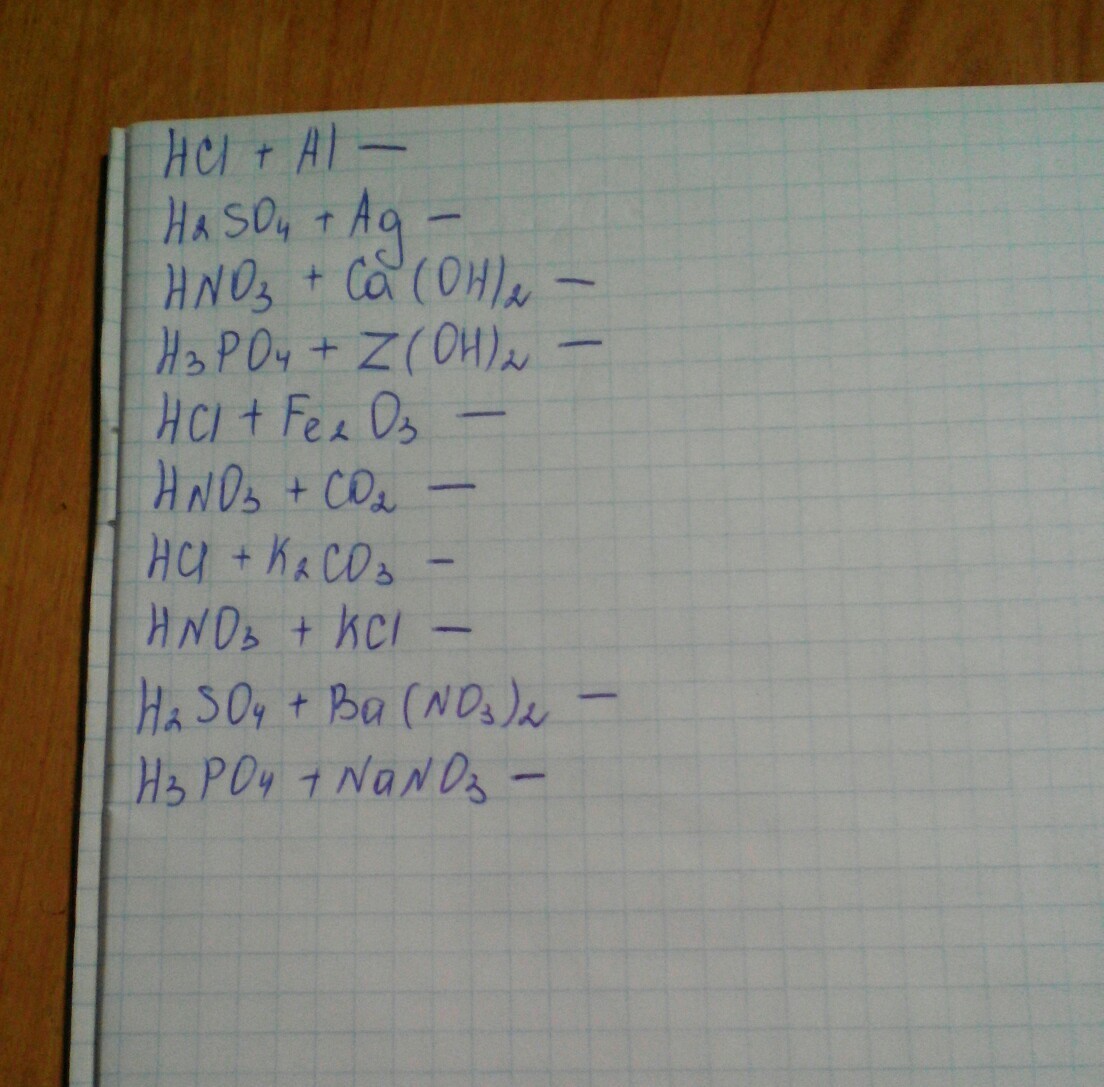 HCl + Al —
H₂SO₄ + Ag —
HNO₃ + Ca(OH)₂ —
H₃PO₄ + Z(OH)₂ —
HCl + Fe₂O₃ —
HNO₃ + CO₂ —
HCl + K₂CO₃ —
HNO₃ + KCl —
H₂SO₄ + Ba(NO₃)₂ —
H₃PO₄ + NaNO₃ —